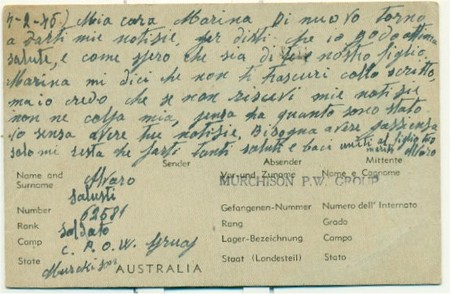 4-2-45) Mia cara Marina. Di nuovo torno
a darti mie notisie, per dirti che io godo ottima
salute, e come spero che sia di te e nostro figlio.
Marina mi dici che non ti trascuri collo scritto,
ma io credo che se non ricevi mie notisie
non ne colpa mia, pensa ha quanto sono stato
io senza avere tue notisie. Bisogna avere passienza
solo mi resta che farti tanti saluti e baci uniti al figlio tuo
marito Alvaro
Sender Absender Mittente
Name and Surname Alvaro Salusti Vor-und Zuname Nome e Cognome
MURCHISON P.W. GROUP
Number 62581 Gefangenen-Nummer Numero dell' Internato
Rank Soldato Rang Grado
Camp C. P.O.W. Group Lager-Bezeichnung Campo
State Murchison AUSTRALIA Staat (Landesteil) Stato